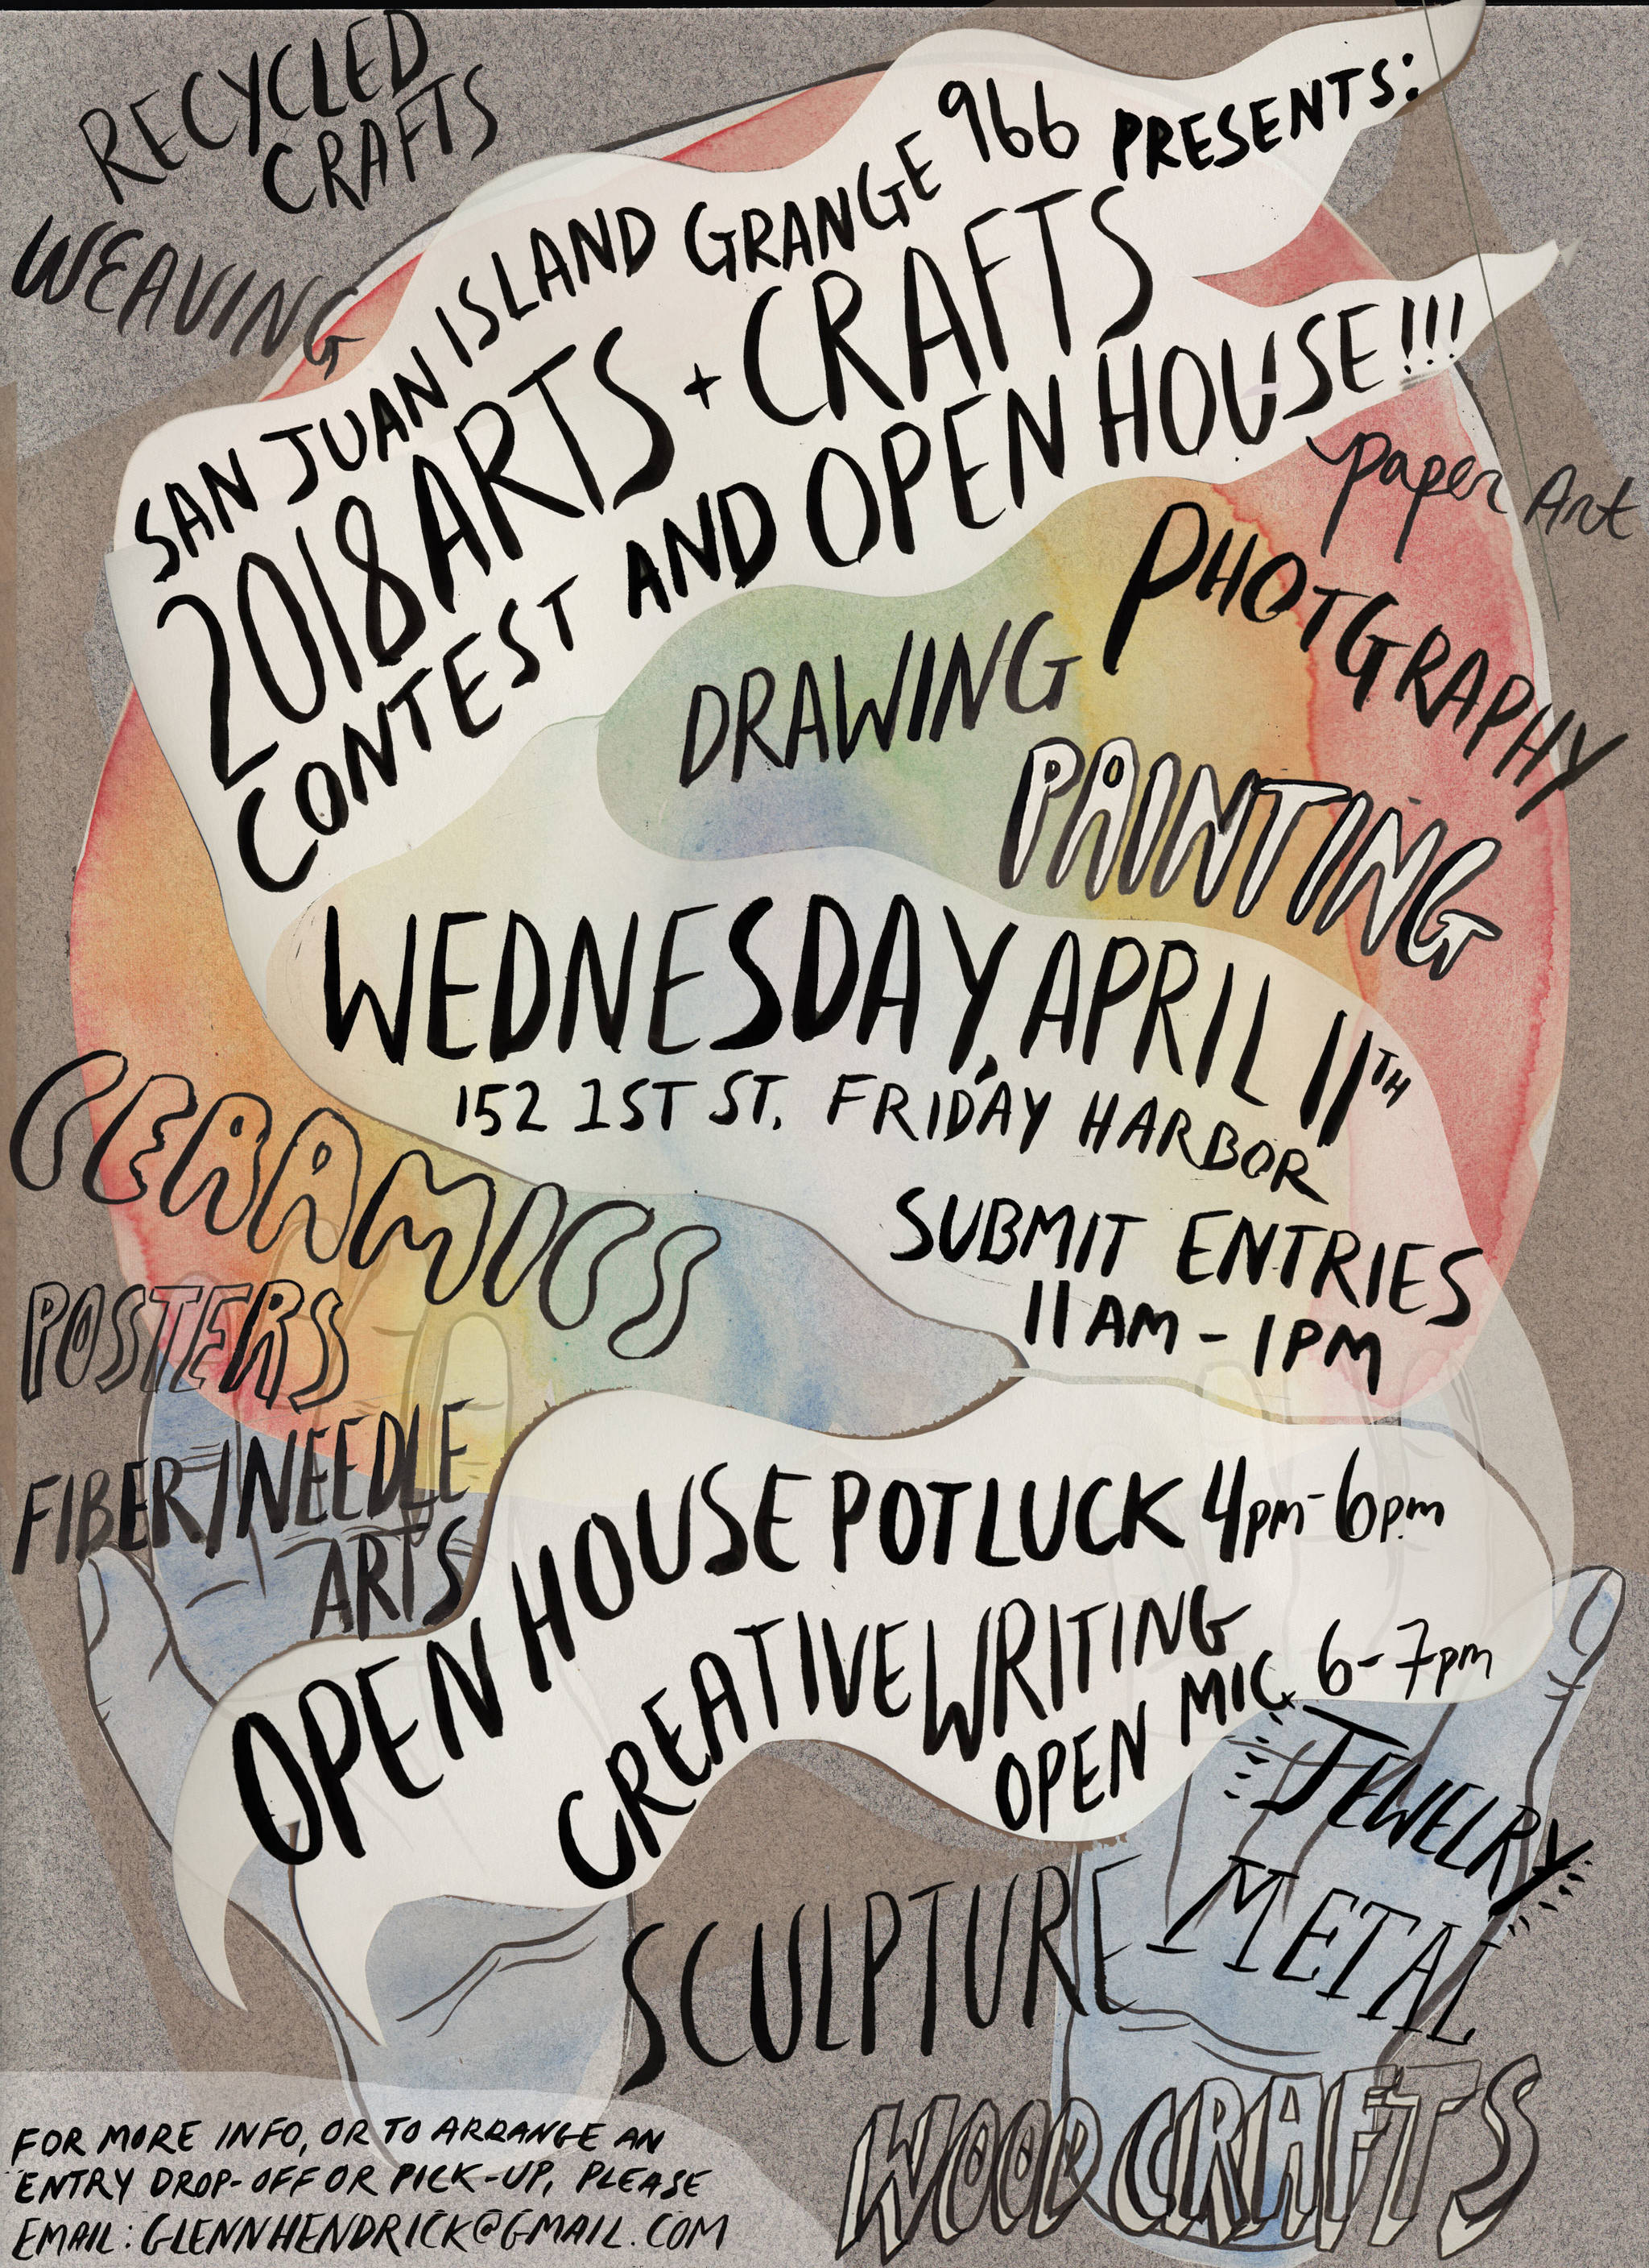 RECYCLED
CRAFTS
WEAVING
SAN JUAN ISLAND GRANGE 966 PRESENTS:
2018 ARTS + CRAFTS
CONTEST AND OPEN HOUSE!!!
paper Art
PHOTGRAPHY
DRAWING
PAINTING
WEDNESDAY, APRIL 11TH
152 1ST ST. FRIDAY HARBOR
CERAMICS
SUBMIT ENTRIES
11AM - 1PM
POSTERS
FIBER/NEEDLE
ARTS
OPEN HOUSE POTLUCK 4pm-6pm
CREATIVE WRITING
OPEN MIC 6-7pm
JEWELRY
METAL
SCULPTURE
WOOD CRAFTS
FOR MORE INFO, OR TO ARRANGE AN
ENTRY DROP-OFF OR PICK-UP, PLEASE
EMAIL: GLENNHENDRICK@GMAIL.COM